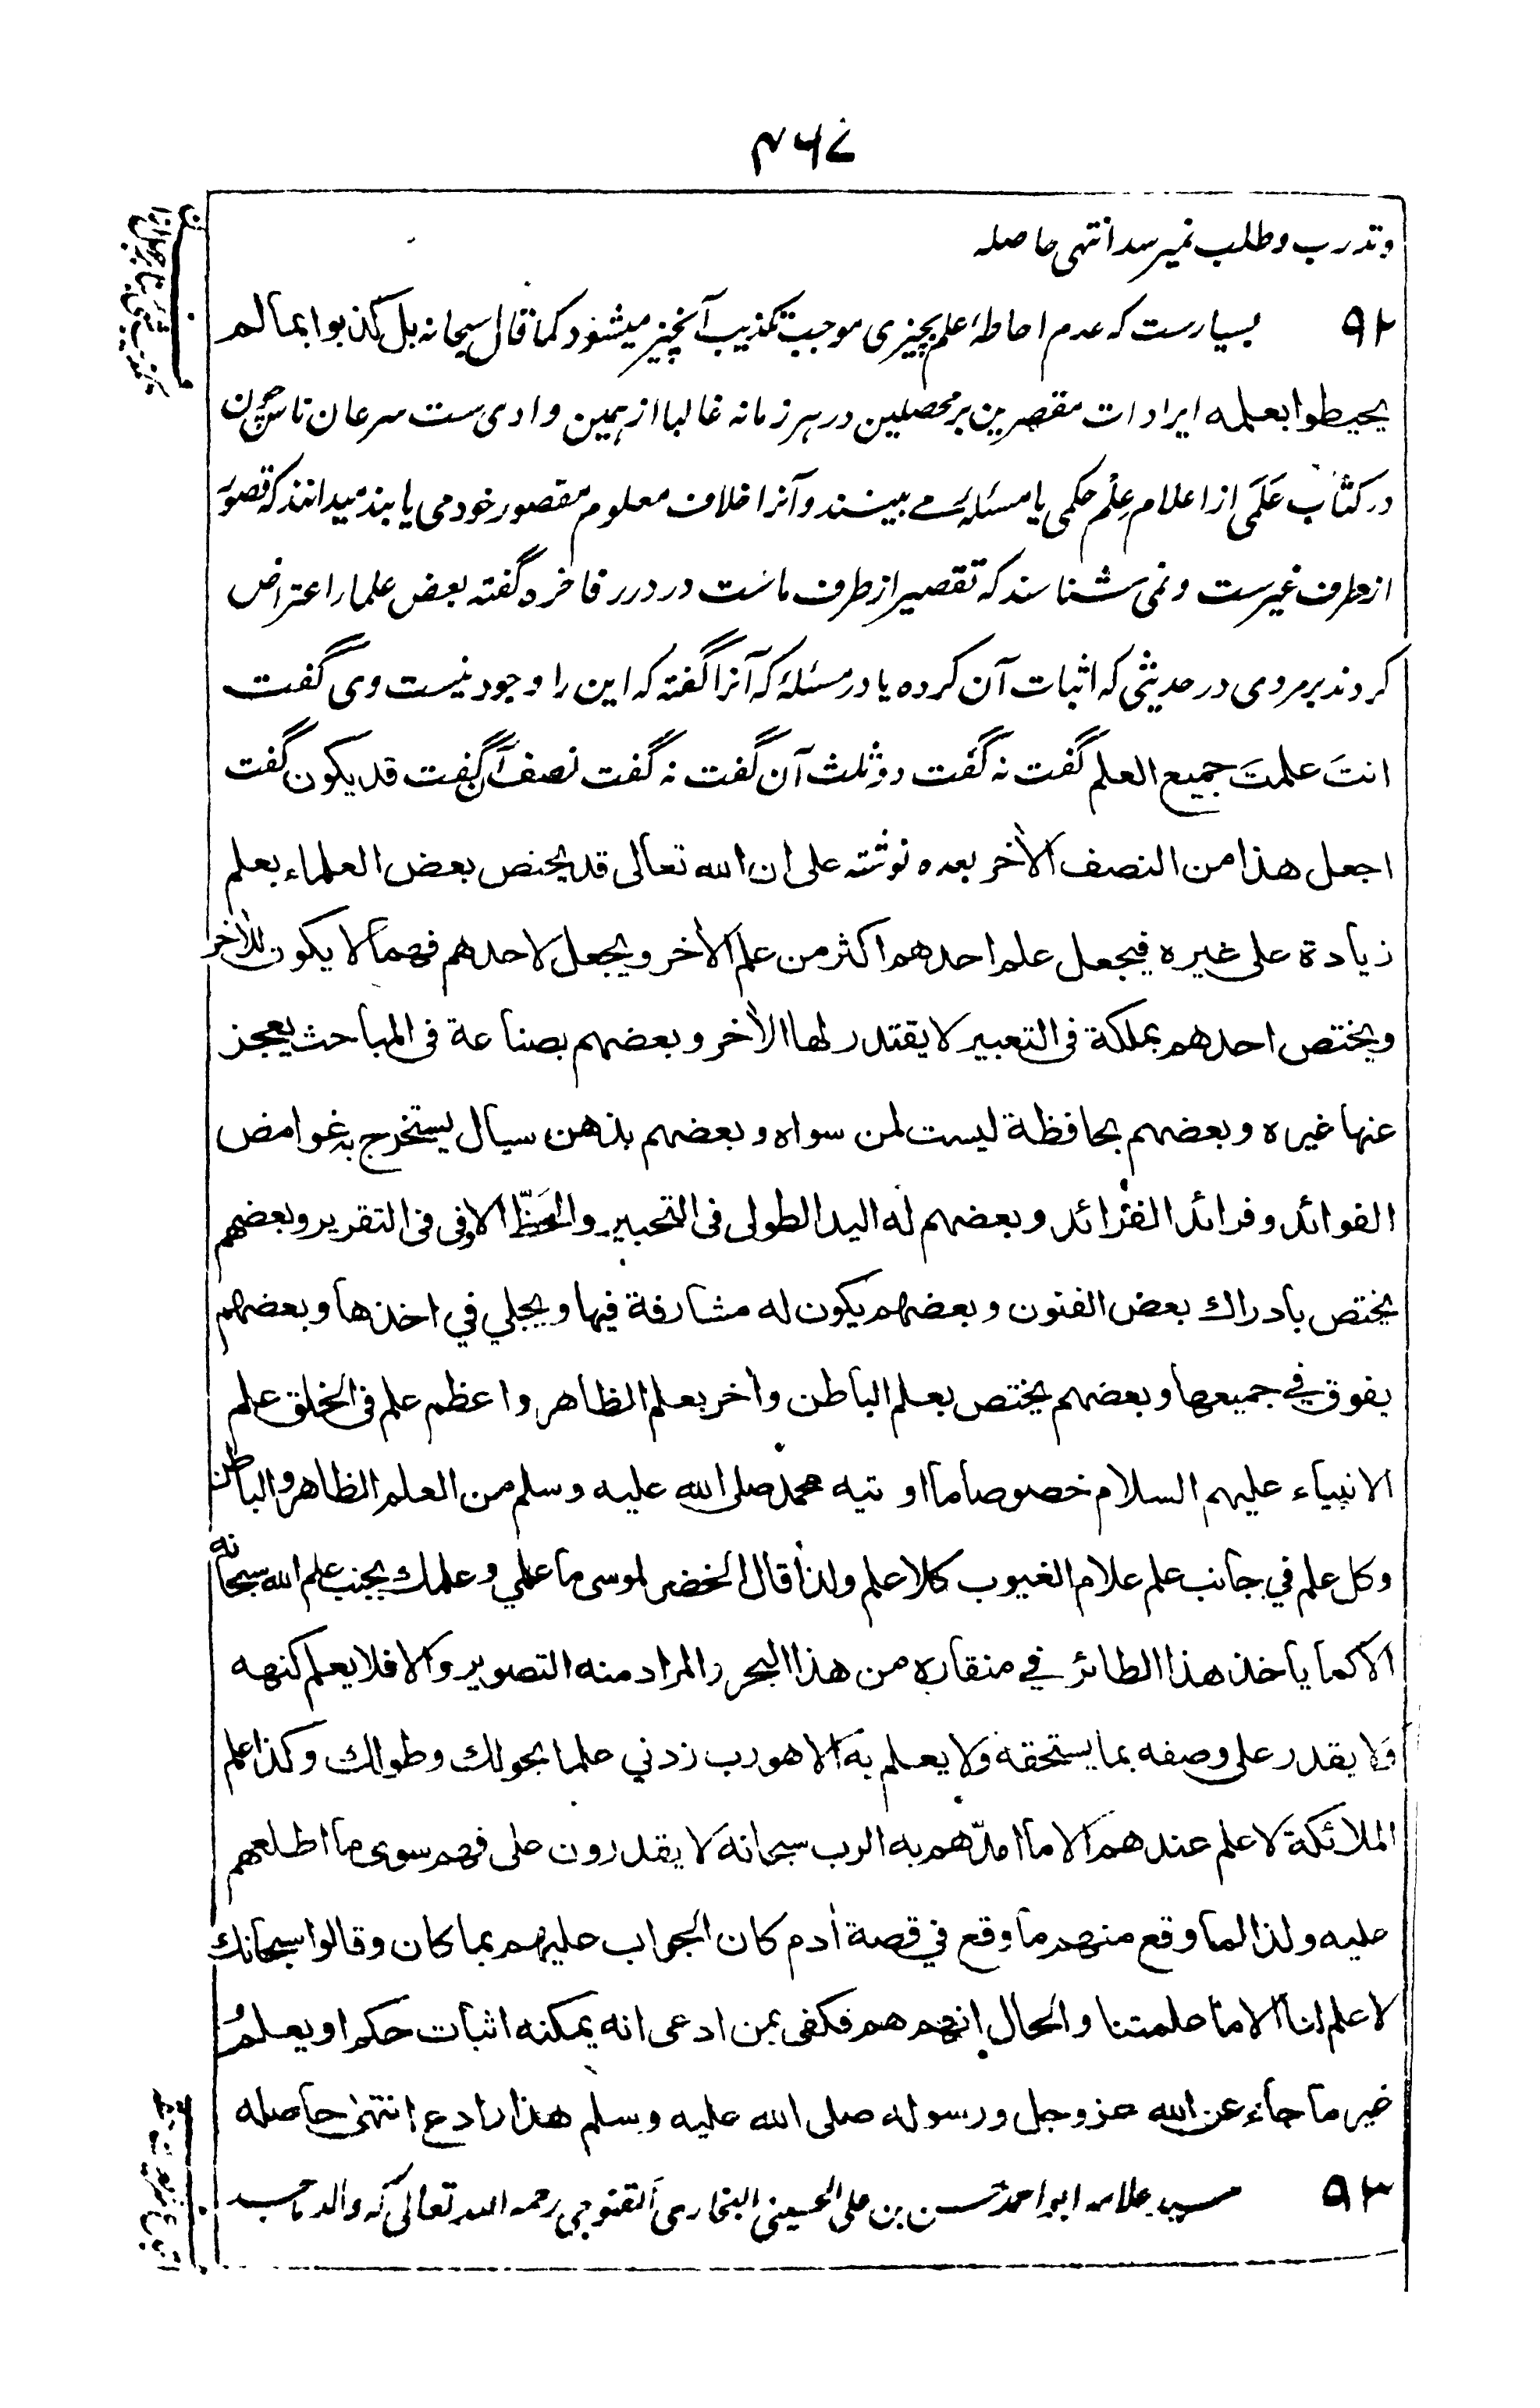 ۴۶۷
وتدرب وطلب نمیرسد انتهی حاصله
۹۲ بسیارست که عدم احاطهٔ علم بچیزی موجب تکذیب آنچیز میشود کما قال سبحانه بل کذبوا بما لم
یحیطوا بعلمه ایرادات مقصرین بر محصلین در هر زمانه غالبا از همین وادی ست سرعان ناس چون
در کتاب عَلَمی از اعلام عِلْم حکمی یا مسئلهٔ مے بینند و آنرا خلاف معلوم مقصور خود می یابند میدانند که قصور
از طرف غیرست و نمی شناسند که تقصیر از طرف ماست در درر فاخره گفته بعض علما را اعتراض
کردند بر مردی در حدیثی که اثبات آن کرده یا در مسئلهٔ که آنرا گفته که این را وجود نیست وی گفت
انتَ علمتَ جمیع العلم گفت نه گفت دو ثلث آن گفت نه گفت نصف آن گفت قد یکون گفت
اجعل هذا من النصف الأخر بعده نوشته علی ان الله تعالی قد یختص بعض العلماء بعلم
زیادة علی غیره فیجعل علم احدهم اکثر من علم الأخر ویجعل لاحدهم فهما لا یکون للأخر
ویختص احدهم بملکة فی التعبیر لا یقتدر لها الأخر وبعضهم بصناعة فی المباحث یعجز
عنها غیره وبعضهم بحافظة لیست لمن سواه وبعضهم بذهن سیال یستخرج به غوامض
الفوائد وفرائد الفرائد وبعضهم له الید الطولی فی التحبیر والحَظّ الاوفی فی التقریر وبعضهم
یختص بادراك بعض الفنون وبعضهم یکون له مشارفة فیها ویجلي في اخذها وبعضهم
یفوق في جمیعها وبعضهم یختص بعلم الباطن وأخر بعلم الظاهر واعظم علم فی الخلق علم
الانبیاء علیهم السلام خصوصا ما اوتیه محمد صلی الله علیه وسلم من العلم الظاهر والباطن
وکل علم في جانب علم علام الغیوب کلا علم ولذا قال الخضر لموسی ما علمي وعلمك بجنب علم الله سبحانه
الا کما یاخذ هذا الطائر في منقاره من هذا البحر والمراد منه التصویر والا فلا یعلم کنهه
ولا یقدر علی وصفه بما یستحقه ولا یعلم به الا هو رب زدني علما بحولك وطولك وکذا علم
الملائکة لا علم عندهم الا ما امدّهم به الرب سبحانه لا یقدرون علی فهم سوی ما اطلعهم
علیه ولذا لما وقع منهم ما وقع في قصة أدم کان الجواب علیهم بما کان وقالوا سبحانك
لا علم لنا الا ما علمتنا والحال انهم هم فکفی بمن ادعی انه یمکنه اثبات حکم او یعلمُ
غیر ما جاء عن الله عزوجل ورسوله صلی الله علیه وسلم هذا رادع انتهی حاصله
۹۳ سید علامه ابو احمد حسن بن علی الحسینی البخاری القنوجی رحمه الله تعالی که والد ماجد